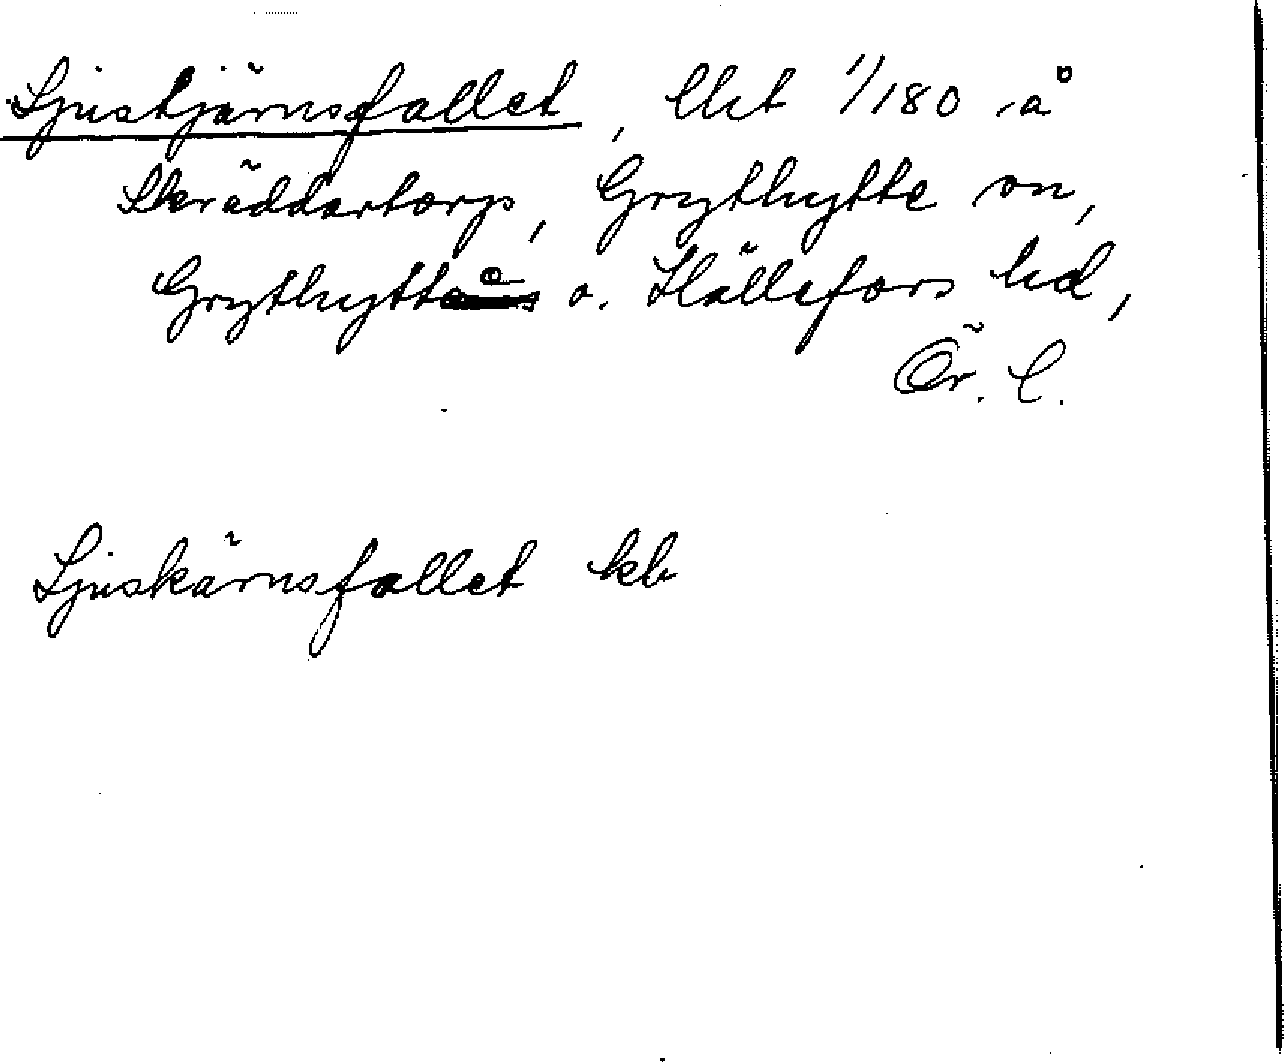 Ljustjärnsfallet, lht 1/180 å
Skräddartorp, Grythytte sn,
Grythytte o. Hällefors hd,
Ör. l.
Ljuskärnsfallet kb